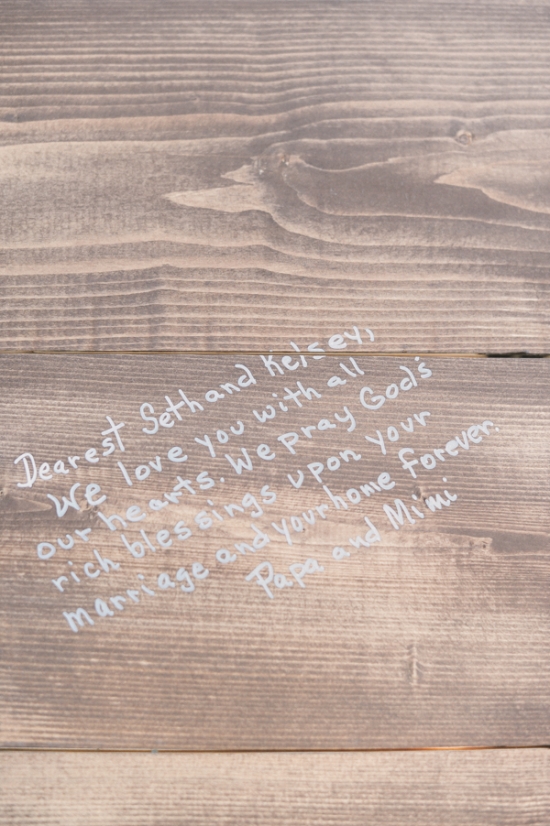 Dearest Seth and Kelsey,
We love you with all
our hearts. We pray God's
rich blessings upon your
marriage and your home forever.
Papa and Mimi